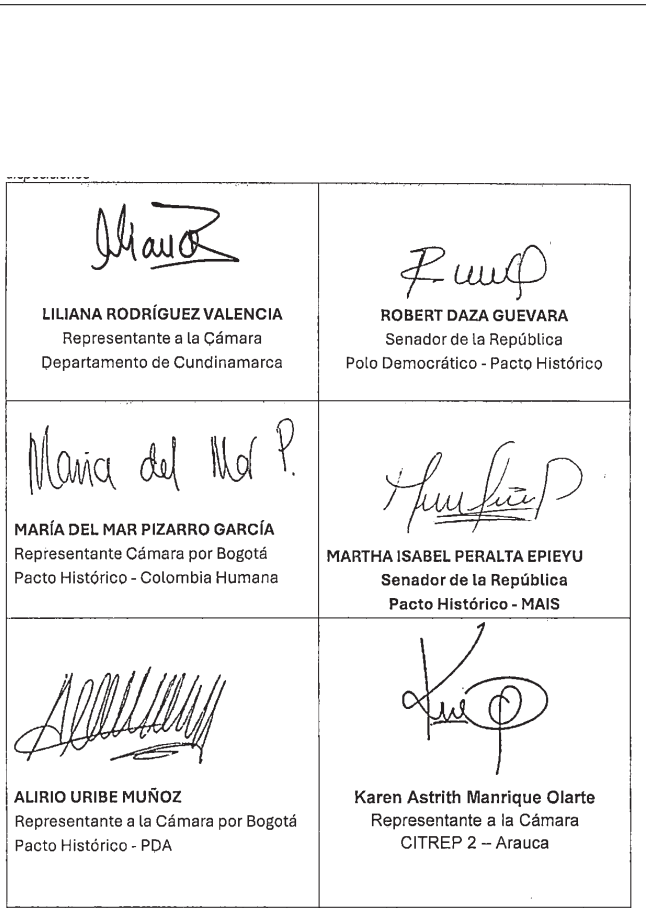 disposiciones
LILIANA RODRÍGUEZ VALENCIA
Representante a la Cámara
Departamento de Cundinamarca
ROBERT DAZA GUEVARA
Senador de la República
Polo Democrático - Pacto Histórico
Maria del Mar P.
MARÍA DEL MAR PIZARRO GARCÍA
Representante Cámara por Bogotá
Pacto Histórico - Colombia Humana
MARTHA ISABEL PERALTA EPIEYU
Senador de la República
Pacto Histórico - MAIS
ALIRIO URIBE MUÑOZ
Representante a la Cámara por Bogotá
Pacto Histórico - PDA
Karen Astrith Manrique Olarte
Representante a la Cámara
CITREP 2 – Arauca